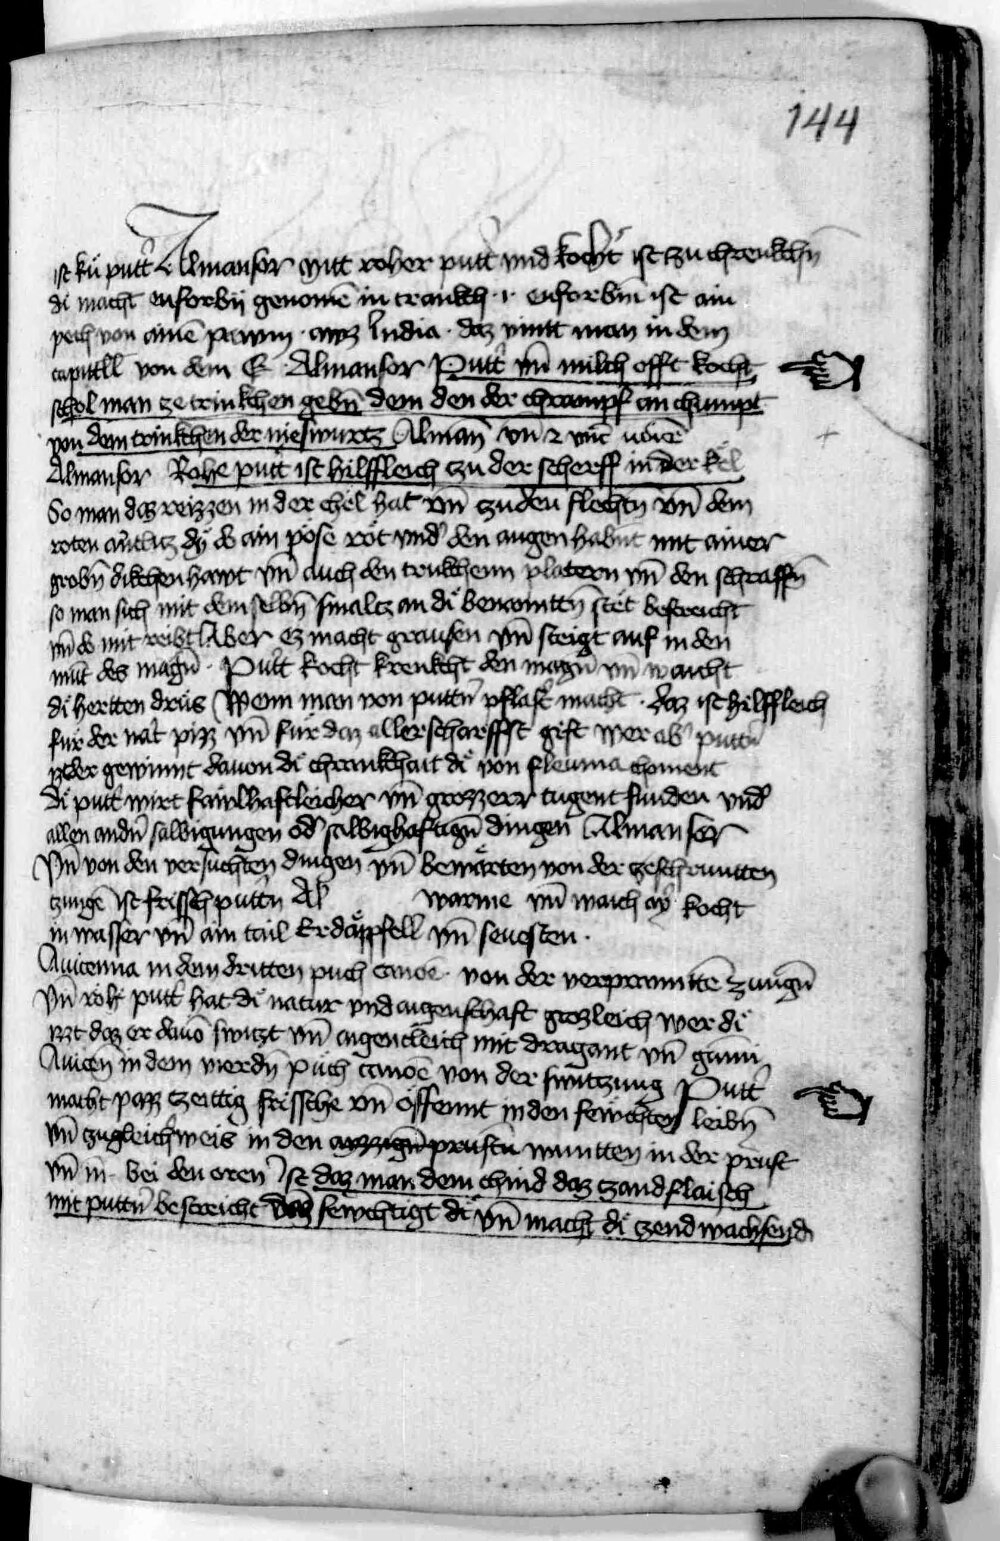 144
ist kü putt̄ Almansor mitt roher putt̄ vnd kocht ist zu chrenkchn̄
di macht euforbij genomē in trankch · i · euforbiū ist ain
pech von ainē pawm · awz India · daz vintt man in dem
capittll von dem E Almansor Putt̄ vn̄ milch offt kocht
schol man ze trinkchen gebn̄ dem den der chrampf an chumpt
von dem trinkchen der nieswurtz Alman̄ vn̄
Almansor Rohe putt̄ ist hilffleich zu der scherff in der kel
So man daz reizzen in der chel hat vn̄ zu den flechtn̄ vn̄ dem
roten antlitz dÿ do ain pöse röt vnd̄ den augen habnt mit ainer
grobn̄ dikchen hawt vn̄ auch den trukchenn platern vn̄ den schraffn̄
so man sich mit dem selbn̄ smaltz an di benomttn̄ stet bestreicht
vn̄ do mit reibt Aber ez macht grausen vn̄ steigt auf in den
mūt des magn̄ · Putt kocht krenkcht den magn̄ vn̄ waicht
di hertten drüs Wenn man von puttn̄ pflast̄ macht · daz ist hilffleich
für der nat̄ pizz vn̄ für daz allerscharffst gift wer ab̄ puttn̄
izzet der gewinnt dauon di chrankchait di von fleuma choment
Di putt̄ wirt hailhaftleicher vn̄ grozzerr tugent funden vnd̄
allen andn̄ salbigungen od̄ salbighaftign̄ dingen Almansor
Vn̄ von den versuchten dingen vn̄ bewarten von der zeschruntten
zungē ist frissch puttn̄ Al warme vn̄ waich ay kocht
in wasser vn̄ ain tail Erdäppfell vn̄ seuesten ·
Auicenna in dem dritten puch canoē · von der verpranntē zungn̄
Vn̄ roh putt̄ hat di natur vnd aigenschaft grozleich wer di
izzt daz er dauō switzt vn̄ aigentleich mit dragant vn̄ gummi
Auicen̄ in dem vierdn̄ püch canoē von der switzung Putt̄
macht pazz zeittig frissche vn̄ öffennt in den fewchten leibn̄
vn̄ zugleich̄weis in den prustn̄ wuntten in der prust
vn̄ in · bei den oren Ist daz man dem chind daz zandflaisch
mit puttn̄ bestreicht daz fewchtigt di vn̄ macht di zend wachsend